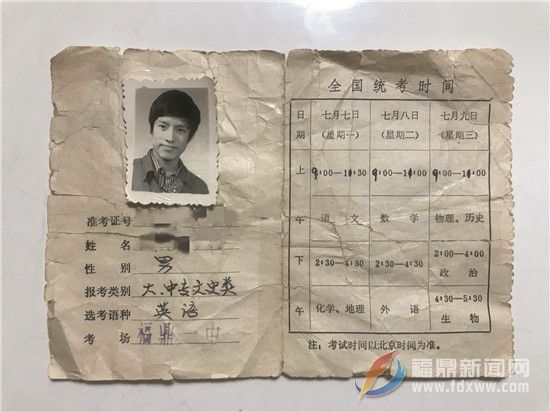 准考证号
姓名
性别 男
报考类别 大、中专文史类
选考语种 英语
考场 福鼎一中
全国统考时间
日期 七月七日(星期一) 七月八日(星期二) 七月九日(星期三)
上午 9:00—11:30 9:00—11:00 9:00—11:00
语文 数学 物理、历史
下午 2:30—4:30 2:30—4:30 2:00—4:00
政治
4:30—5:30
化学、地理 外语 生物
注:考试时间以北京时间为准。
福鼎新闻网
www.fdxww.com